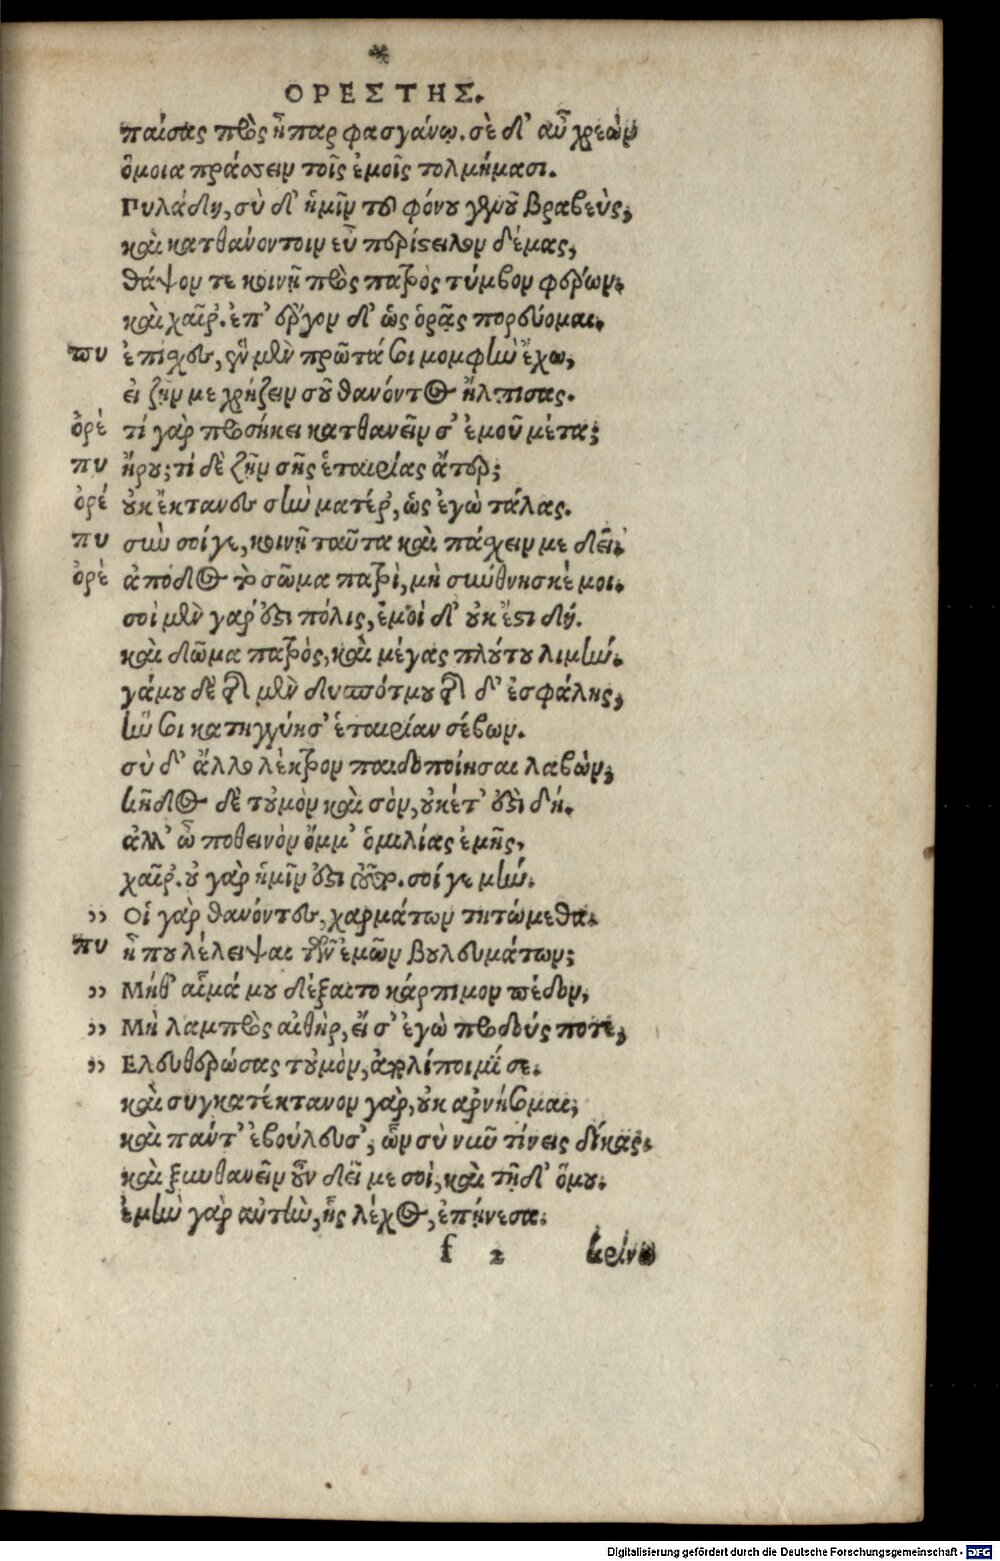 *
ΟΡΕΣΤΗΣ.
παίσας πρὸς ἧπαρ φασγάνῳ. σὲ δ' αὖ χρεὼν
ὅμοια πράσσειν τοῖς ἐμοῖς τολμήμασι.
Πυλάδη, σὺ δ' ἡμῖν τοῦ φόνου γενοῦ βραβεὺς,
καὶ κατθανόντοιν εὖ περίστειλον δέμας,
θάψον τε κοινῇ πρὸς πατρὸς τύμβον φέρων.
καὶ χαῖρ'. ἐπ' ἔργον δ' ὡς ὁρᾷς πορεύομαι.
πυ ἐπίσχες, ἓν μὲν πρῶτά σοι μομφὴν ἔχω,
εἰ ζῆν με χρῄζειν σοῦ θανόντος ἤλπισας.
ὀρέ τί γὰρ προσήκει κατθανεῖν σ' ἐμοῦ μέτα;
πυ ἤρου; τί δὲ ζῆν σῆς ἑταιρίας ἄτερ;
ὀρέ οὐκ ἔκτανες σὴν ματέρ', ὡς ἐγὼ τάλας.
πυ σὺν σοί γε, κοινῇ ταῦτα καὶ πάσχειν με δεῖ.
ὀρὲ ἀπόδος τὸ σῶμα πατρὶ, μὴ σύνθνησκέ μοι.
σοὶ μὲν γάρ ἐστι πόλις, ἐμοὶ δ' οὐκ ἔστι δή.
καὶ δῶμα πατρὸς, καὶ μέγας πλούτου λιμήν.
γάμου δὲ τῆς μὲν δυσπότμου τῆς δ' ἐσφάλης,
ἥν σοι κατηγγύησ' ἑταιρίαν σέβων.
σὺ δ' ἄλλο λέκτρον παιδοποίησαι λαβὼν,
κῆδος δὲ τοὐμὸν καὶ σὸν, οὐκέτ' ἐστὶ δή.
ἀλλ' ὦ ποθεινὸν ὄμμ' ὁμιλίας ἐμῆς,
χαῖρ'. οὐ γὰρ ἡμῖν ἐστι τοῦτο. σοί γε μήν.
,, Οἱ γὰρ θανόντες, χαρμάτων τητώμεθα.
πυ ἦ που λέλειψαι τῶν ἐμῶν βουλευμάτων;
,, Μήθ' αἷμά μου δέξαιτο κάρπιμον πέδον,
,, Μὴ λαμπρὸς αἰθὴρ, εἴ σ' ἐγὼ προδούς ποτε,
,, Ελευθερώσας τοὐμὸν, ἀπολίποιμί σε.
καὶ συγκατέκτανον γὰρ, οὐκ ἀρνήσομαι,
καὶ πάντ' ἐβούλευσ', ὧν σὺ νῦν τίνεις δίκας.
καὶ ξυνθανεῖν οὖν δεῖ με σοὶ, καὶ τῇδ' ὁμοῦ.
ἐμὴν γὰρ αὐτὴν, ἧς λέχος, ἐπῄνεσα.
f 2 κρίνω
Digitalisierung gefördert durch die Deutsche Forschungsgemeinschaft - DFG